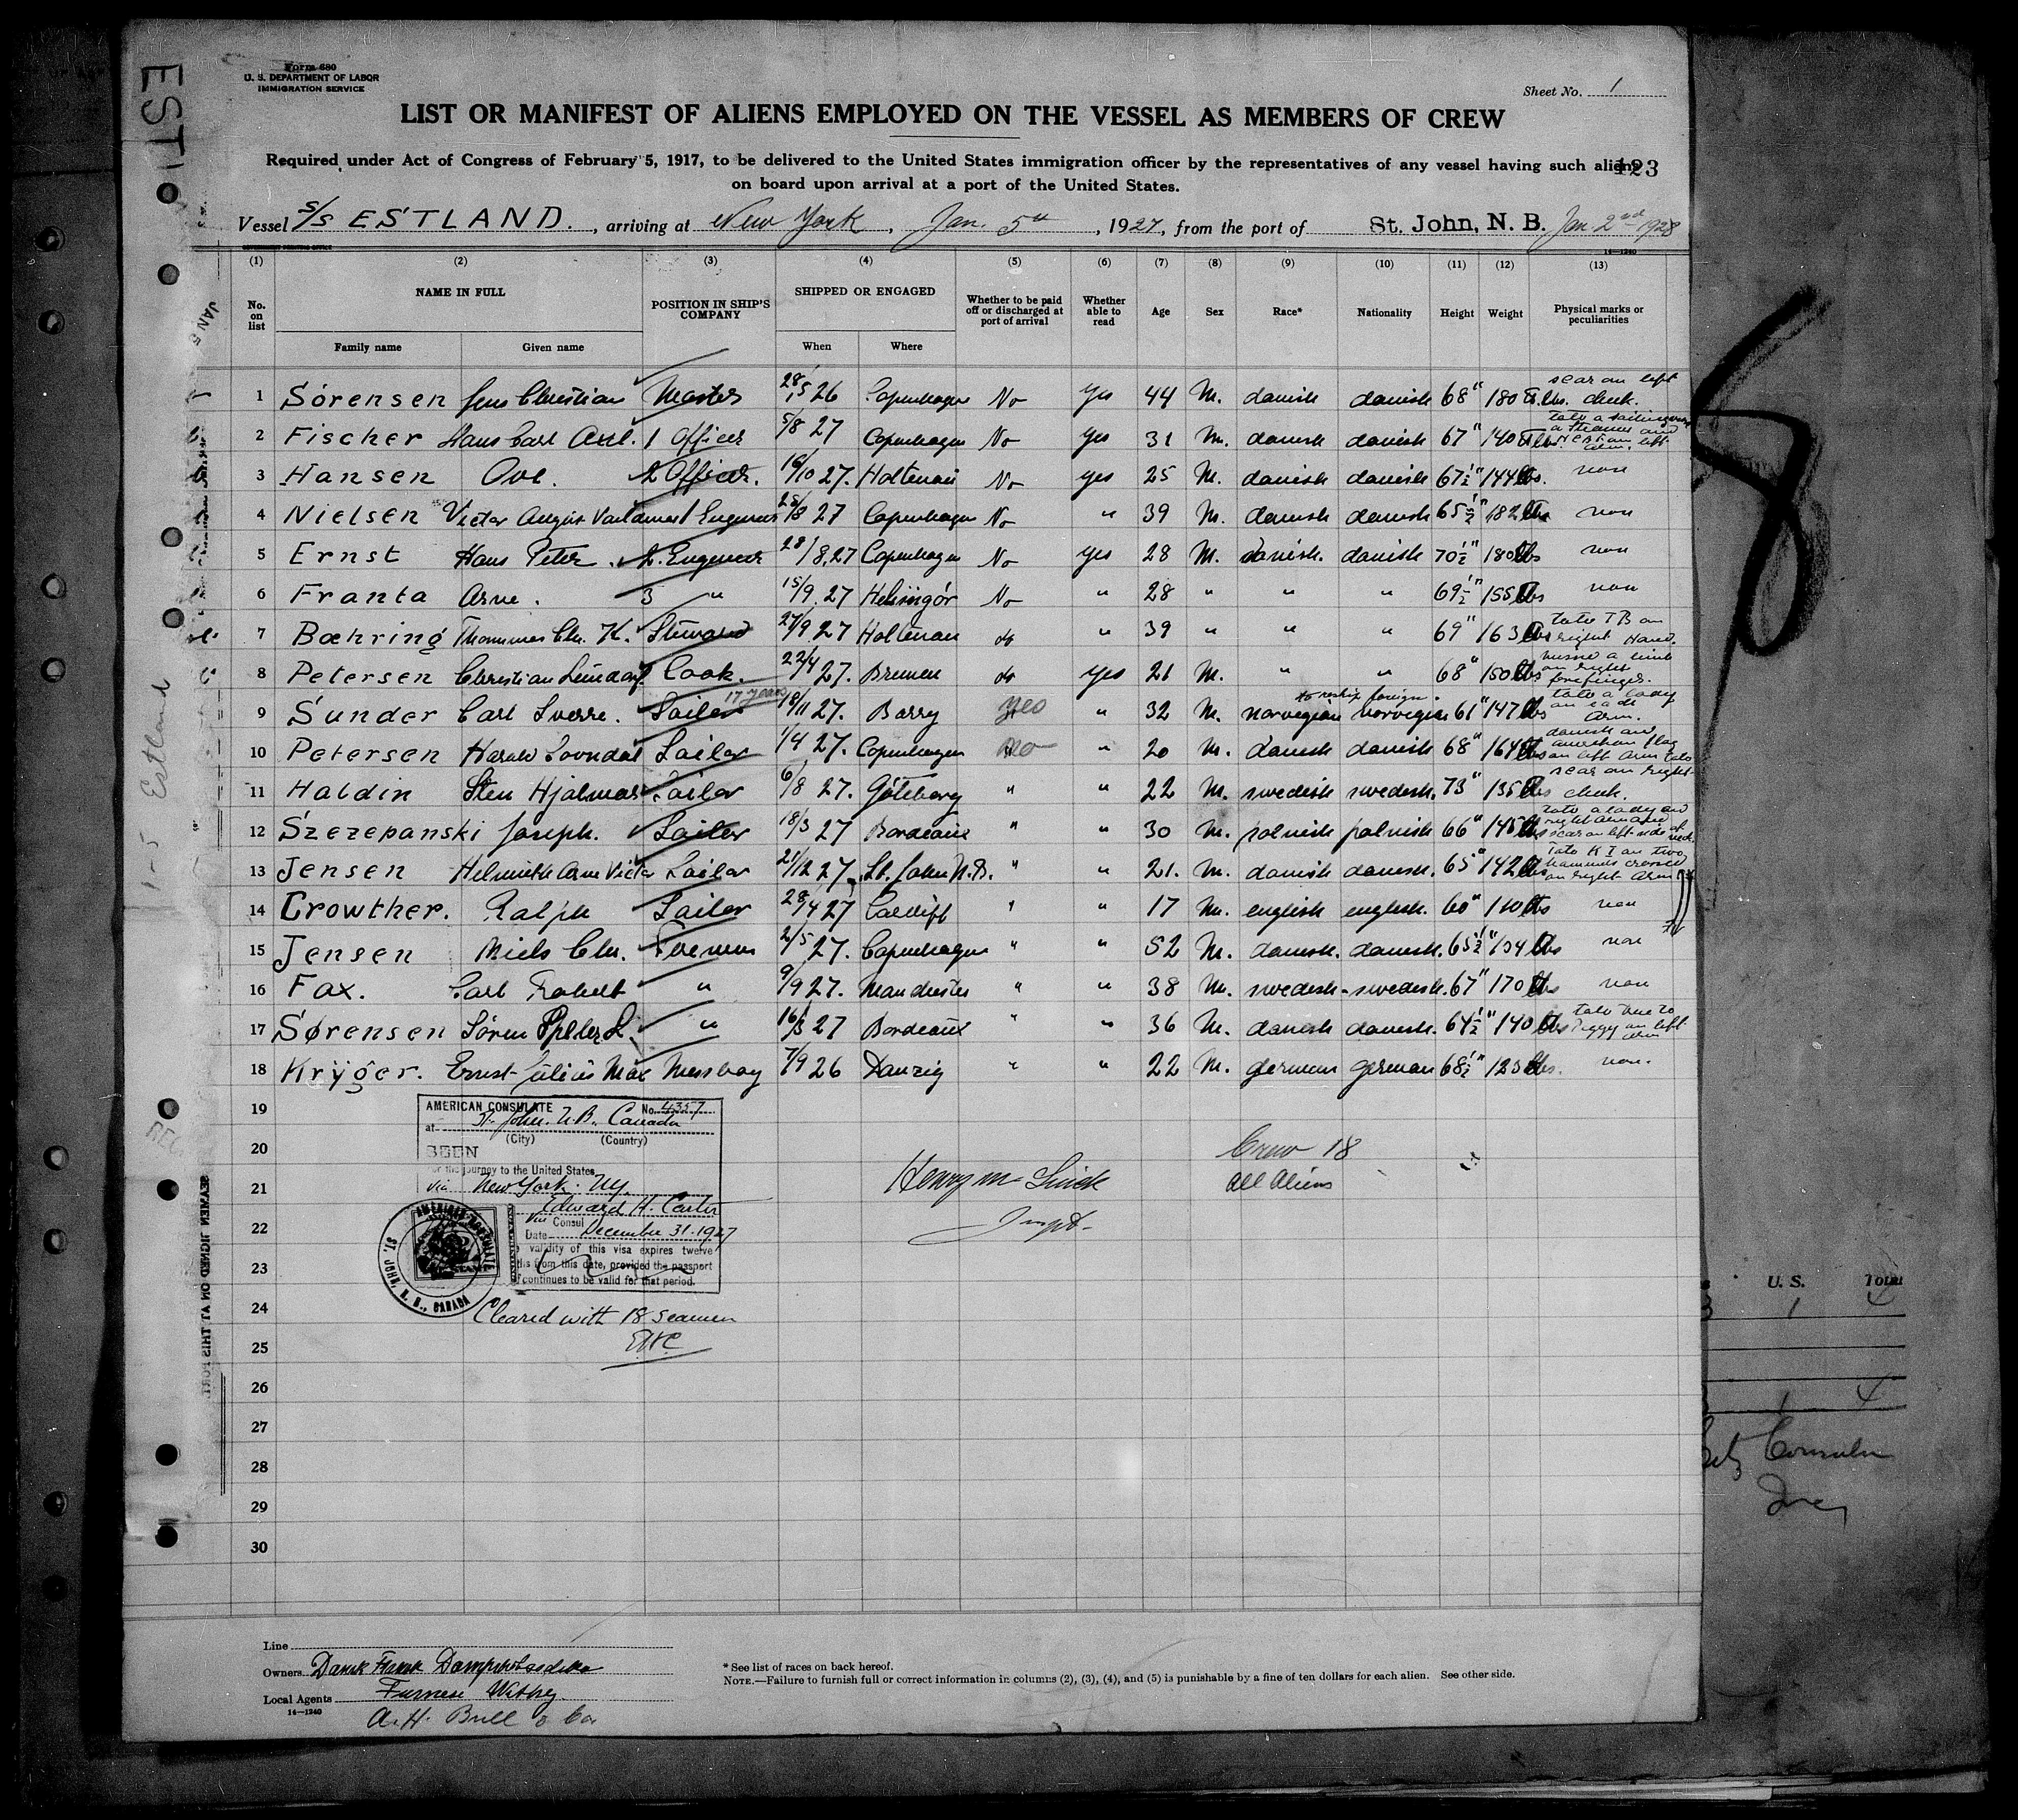 ESTI
Form 680
U. S. DEPARTMENT OF LABOR
IMMIGRATION SERVICE
Sheet No. 1
LIST OR MANIFEST OF ALIENS EMPLOYED ON THE VESSEL AS MEMBERS OF CREW
Required under Act of Congress of February 5, 1917, to be delivered to the United States immigration officer by the representatives of any vessel having such aliens
123
on board upon arrival at a port of the United States.
Vessel S/S ESTLAND. , arriving at New York , Jan. 5th , 1927, from the port of St. John, N. B. Jan 2nd 1928
GOVERNMENT PRINTING OFFICE
14—1240
(1) (2) (3) (4) (5) (6) (7) (8) (9) (10) (11) (12) (13)
No. on list NAME IN FULL POSITION IN SHIP'S COMPANY SHIPPED OR ENGAGED Whether to be paid off or discharged at port of arrival Whether able to read Age Sex Race* Nationality Height Weight Physical marks or peculiarities
Family name Given name When Where
1 Sörensen Jens Christian Master 28/5 26 Copenhagen No Yes 44 M. danish danish 68" 180 lbs. scar on left cheek.
2 Fischer Hans Carl Axel. 1 Officer 5/8 27 Copenhagen No Yes 31 M. danish danish 67" 140 lbs
3 Hansen Ove. 2 Officer. 16/10 27. Holtenau No yes 25 M. danish danish 67½" 144 lbs. non
4 Nielsen Victor August Valdemar 1 Engineer 25/8 27 Copenhagen No " 39 M. danish danish 65½" 182 lbs non
5 Ernst Hans Peter. 2. Engineer 28/8.27 Copenhagen No yes 28 M. danish. danish 70½" 180 lbs non
6 Franta Arne. 3 " 15/9.27 Helsingör No " 28 " " " 69½" 155 lbs non
7 Bæhring Thommes Chr. K. Steward 27/9 27 Holtenau do " 39 " " " 69" 163 lbs tato TB on right Hand.
8 Petersen Christian Lundorf Cook. 22/4 27. Bremen do yes 21 M. " " 68" 150 lbs
17 years
9 Sunder Carl Sverre. Sailor 18/11 27. Barry yes " 32 M. norvegian norvegian 61" 147 lbs tato a lady
10 Petersen Harald Sovndal Sailor 1/4 27. Copenhagen no " 20 M. danish danish 68" 164 lbs danish and american flag on left arm tato
11 Haldin Sten Hjalmar Sailor 6/8 27. Göteborg " " 22 M. swedish swedish. 73" 135 lbs scar on right cheek.
12 Szezepanski Joseph. Sailor 18/3 27 Bordeaux " " 30 M. polnish polnish 66" 145 lbs tato a lady on right arm and scar on left side of neck.
13 Jensen Helmuth Arne Victor Sailor 21/12 27. St. John N.B. " " 21. M. danish danish. 65" 142 lbs Tato K I on two hammers crossed on right arm
14 Crowther. Ralph Sailor 28/4 27 Cardiff " " 17 M. english english. 60" 110 lbs non
15 Jensen Niels Chr. Firemen 2/5 27. Copenhagen " " 52 M. danish. danish. 65½" 134 lbs non
16 Fax. Carl Robert " 9/9 27. Manchester " " 38 M. swedish swedish. 67" 170 lbs non
17 Sørensen Sören Peter L. " 16/3 27 Bordeaux " " 36 M. danish danish. 64½" 140 lbs tato True to Peggy on left arm
18 Krÿger. Ernst Julius Max Messboy 7/9 26 Danzig " " 22 M. german german 68½" 123 lbs. non.
19
20
21
22
23
24
25
26
27
28
29
30
AMERICAN CONSULATE No. 4357
at St. John. N.B. Canada
(City) (Country)
SEEN
For the journey to the United States
via New York. N.Y.
Edward H. Carter
Vice Consul
Date December 31-1927
validity of this visa expires twelve
ths from this date, provided the passport
continues to be valid for that period.
AMERICAN CONSULATE
ST. JOHN, N. B., CANADA
Cleared with 18 seamen
EHC
Henry M
Inspt.
Crew 18
All Aliens
1-5 Estland
JAN 5
SEAMEN SIGNED ON AT THIS PORT
U. S. Total
1 4
1 4
Line
Owners Dansk Fransk Dampskibsselska
Local Agents Furness Withy
14—1240
A. H. Bull & Co.
* See list of races on back hereof.
NOTE.—Failure to furnish full or correct information in columns (2), (3), (4), and (5) is punishable by a fine of ten dollars for each alien. See other side.